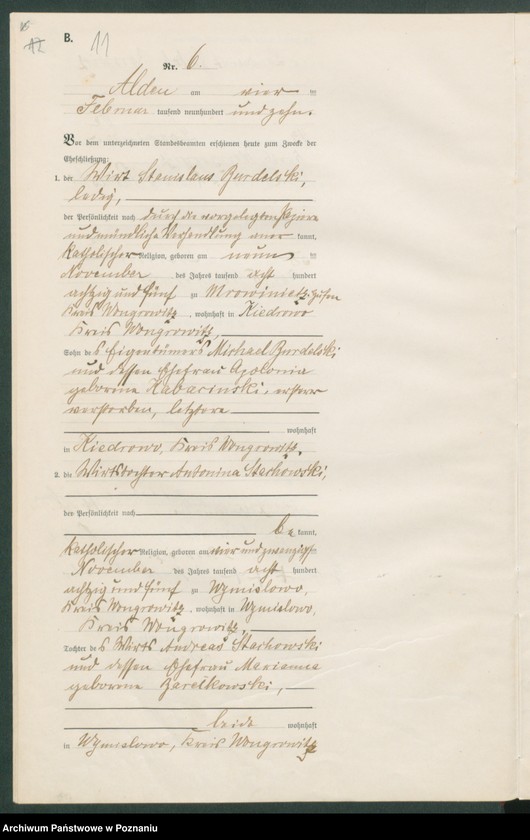 B.
11
Nr. 6.
Alden am vier ten
Februar tausend neunhundert und zehn.
Vor dem unterzeichneten Standesbeamten erschienen heute zum Zwecke der
Eheschließung:
1. der Wirt Stanislaus Burdelski,
ledig,
der Persönlichkeit nach durch die vorgelegten Papiere
und mündliche Verhandlung aner kannt,
katholischer Religion, geboren am neun ten
November des Jahres tausend acht hundert
achtzig und fünf zu Mrowiniec
Kreis Wongrowitz, wohnhaft in Kiedrowo
Kreis Wongrowitz,
Sohn des Eigentümers Michael Burdelski
und dessen Ehefrau Apolonia
geborene Kabacinski, ersterer
verstorben, letztere
wohnhaft
in Kiedrowo, Kreis Wongrowitz.
2. die Wirtstochter Antonina Stachowski,
der Persönlichkeit nach
be kannt,
katholischer Religion, geboren am vier und zwanzigst
November des Jahres tausend acht hundert
achtzig und fünf zu Wymislowo,
Kreis Wongrowitz, wohnhaft in Wymislowo,
Kreis Wongrowitz,
Tochter des Wirts Andreas Stachowski
und dessen Ehefrau Marianna
geborene
beide wohnhaft
in Wymislowo, Kreis Wongrowitz
Archiwum Państwowe w Poznaniu